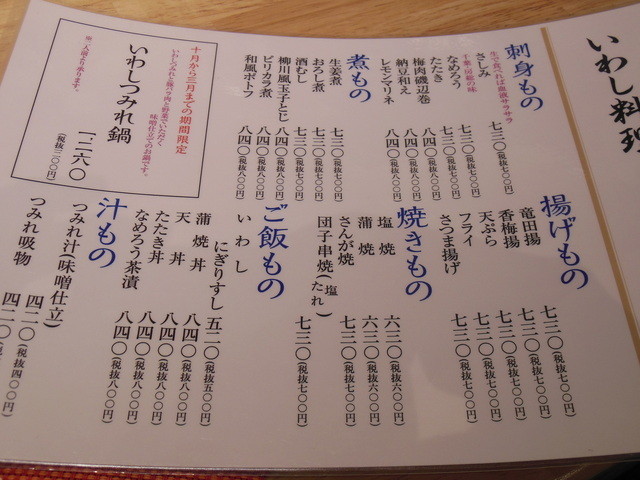 いわし料理
刺身もの
生で食べれば血液サラサラ
さしみ 七三〇(税抜七〇〇円)
千葉・房総の味
なめろう 七三〇(税抜七〇〇円)
たたき 七三〇(税抜七〇〇円)
梅肉磯辺巻 八四〇(税抜八〇〇円)
納豆和え 八四〇(税抜八〇〇円)
レモンマリネ 八四〇(税抜八〇〇円)
煮もの
生姜煮 七三〇(税抜七〇〇円)
おろし煮 七三〇(税抜七〇〇円)
酒むし 七三〇(税抜七〇〇円)
柳川風玉子とじ 八四〇(税抜八〇〇円)
ピリカラ煮 八四〇(税抜八〇〇円)
和風ポトフ 八四〇(税抜八〇〇円)
十月から三月までの期間限定
いわしつみれと鶏バラ肉と野菜でいただく
味噌仕立てのお鍋です。
いわしつみれ鍋
一、二六〇
※二人前より承ります。
揚げもの
竜田揚 七三〇(税抜七〇〇円)
香梅揚 七三〇(税抜七〇〇円)
天ぷら 七三〇(税抜七〇〇円)
フライ 七三〇(税抜七〇〇円)
さつま揚げ 七三〇(税抜七〇〇円)
焼きもの
塩焼 六三〇(税抜六〇〇円)
蒲焼 六三〇(税抜六〇〇円)
さんが焼 七三〇(税抜七〇〇円)
団子串焼(塩 たれ) 七三〇(税抜七〇〇円)
ご飯もの
いわし
にぎりすし 五二〇(税抜五〇〇円)
蒲焼丼 八四〇(税抜八〇〇円)
天丼 八四〇(税抜八〇〇円)
たたき丼 八四〇(税抜八〇〇円)
なめろう茶漬 八四〇(税抜八〇〇円)
汁もの
つみれ汁(味噌仕立) 四二〇(税抜四〇〇円)
つみれ吸物 四二〇(税抜四〇〇円)